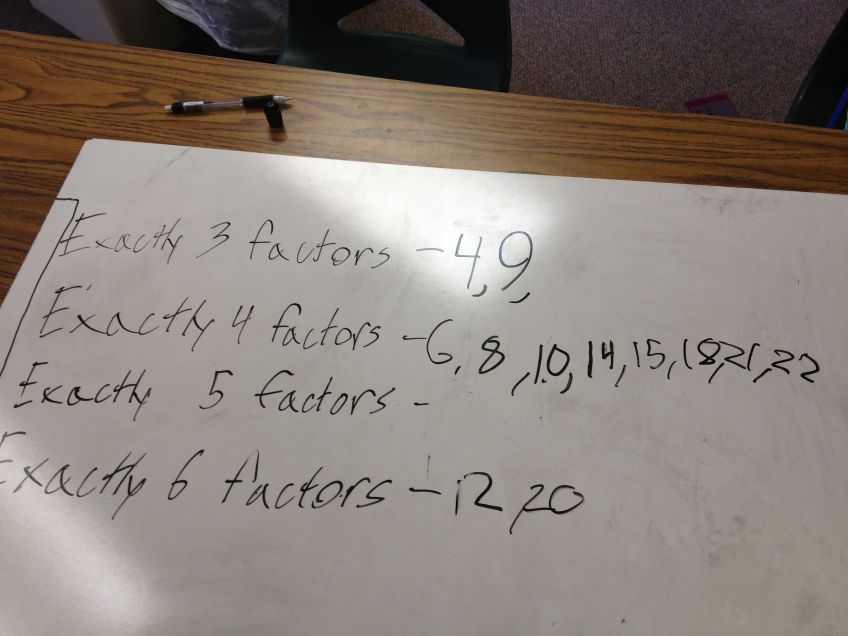 Exactly 3 factors - 4, 9,
Exactly 4 factors - 6, 8, 10, 14, 15, 18, 21, 22
Exactly 5 factors -
Exactly 6 factors - 12, 20